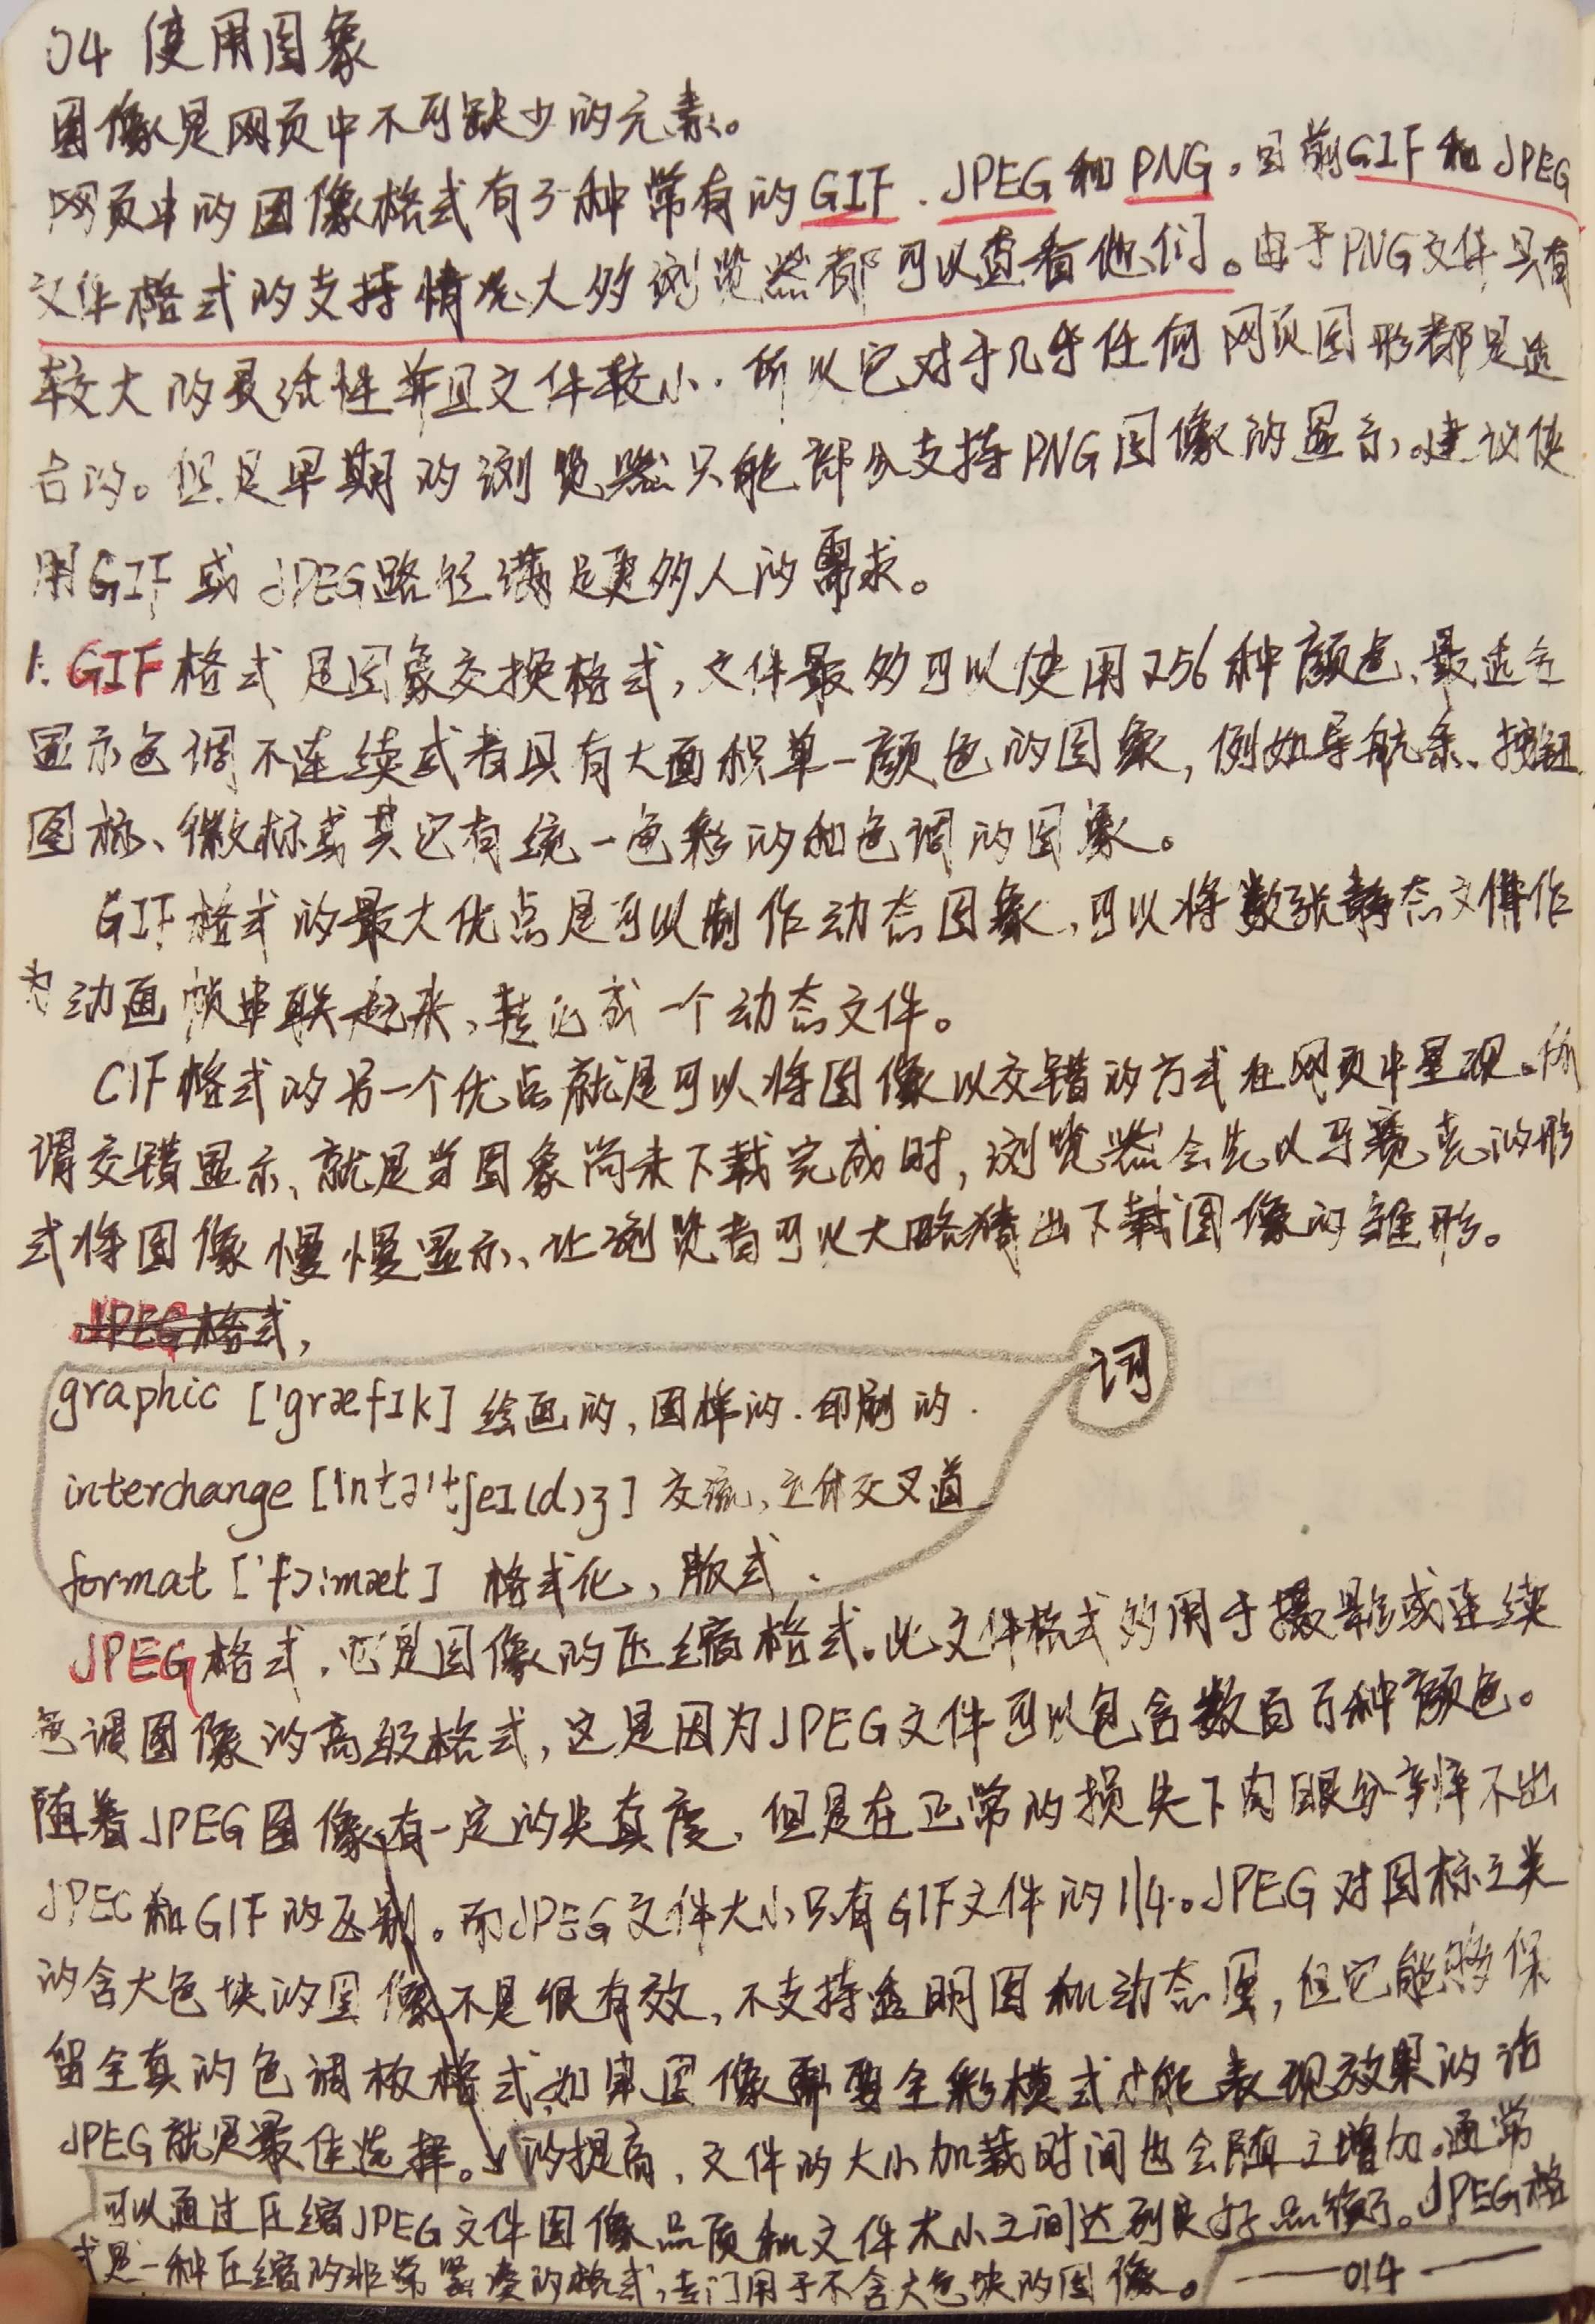 04 使用图象
图像是网页中不可缺少的元素。
网页中的图像格式有3种常有的GIF、JPEG和PNG。目前GIF和JPEG
文件格式的支持情况大多浏览器都可以查看他们。由于PNG文件具有
较大的灵活性并且文件较小.所以它对于几乎任何网页图形都是适
合的。但是早期的浏览器只能部分支持PNG图像的显示。建议使
用GIF或JPEG路径满足更多人的需求。
1.GIF格式是图象交换格式,文件最多可以使用256种颜色、最适合
显示色调不连续或者具有大面积单一颜色的图象,例如导航条、按钮
图标、徽标或其它有统一色彩的和色调的图象。
GIF格式的最大优点是可以制作动态图象,可以将数张静态文件作
为动画帧串联起来,转化成一个动态文件。
GIF格式的另一个优点就是可以将图像以交错的方式在网页中呈现。所
谓交错显示、就是当图象尚未下载完成时,浏览器会先以马赛克的形
式将图像慢慢显示、让浏览者可以大略猜出下载图像的雏形。
JPEG格式,
词
graphic ['græfɪk] 绘画的,图样的.印刷的.
interchange ['ɪntə'tʃeɪ(d)ʒ] 交流,立体交叉道
format ['fɔ:mæt] 格式化,版式.
JPEG格式.它是图像的压缩格式。此文件格式的用于摄影或连续
色调图像的高级格式,这是因为JPEG文件可以包含数百万种颜色。
随着JPEG图像有一定的失真度,但是在正常的损失下肉眼分辨不出
JPEG和GIF的区别。而JPEG文件大小只有GIF文件的1/4。JPEG对图标之类
的含大色块的图像不是很有效,不支持透明图和动态图,但它能够保
留全真的色调板格式.如果图像需要全彩模式才能表现效果的话
JPEG就是最佳选择。的提高,文件的大小加载时间也会随之增加。通常
可以通过压缩JPEG文件图像品质和文件大小之间达到良好品衡。JPEG格
式是一种压缩的非常紧凑的格式,专门用于不含大色块的图像。
014